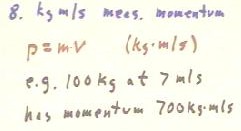 8. kg m/s meas. momentum
p = m·v (kg·m/s)
e.g. 100 kg at 7 m/s
has momentum 700 kg·m/s